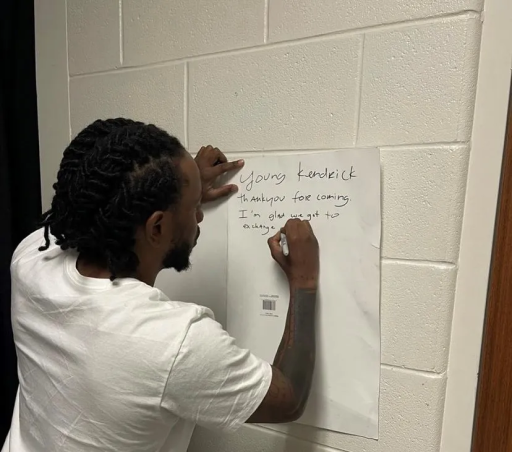 Young Kendrick
thankyou for coming.
I'm glad we got to
exchange